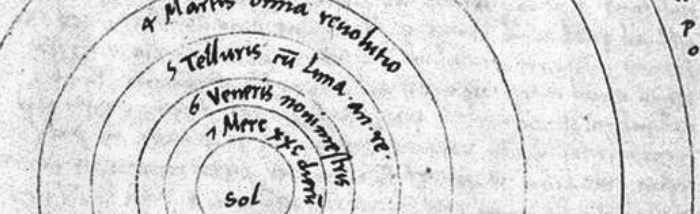 4 Martis bima revolutio
5 Telluris cū Luna · an · re ·
6 Veneris nonimestris
7 Merc xxc dierū
Sol
p
o